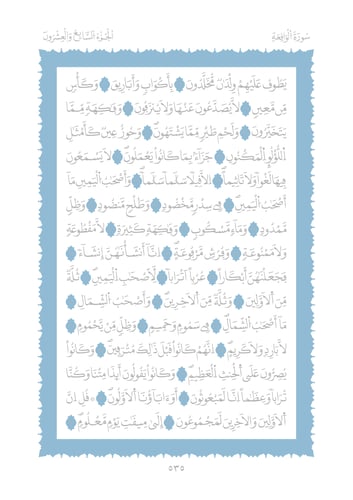 سُورَةُ الْوَاقِعَةِ
الجُزْءُ السَّابِعُ وَالْعِشْرُونَ
يَطُوفُ عَلَيْهِمْ وِلْدَٰنٌ مُّخَلَّدُونَ بِأَكْوَابٍ وَأَبَارِيقَ وَكَأْسٍ
مِّن مَّعِينٍ لَّا يُصَدَّعُونَ عَنْهَا وَلَا يُنزَفُونَ وَفَٰكِهَةٍ مِّمَّا
يَتَخَيَّرُونَ وَلَحْمِ طَيْرٍ مِّمَّا يَشْتَهُونَ وَحُورٌ عِينٌ كَأَمْثَٰلِ
اِ۬للُّؤْلُوِٕ اِ۬لْمَكْنُونِ جَزَآءَۢ بِمَا كَانُوا۟ يَعْمَلُونَ لَا يَسْمَعُونَ
فِيهَا لَغْوًا وَلَا تَاثِيمًا اِلَّا قِيلًا سَلَٰمًا سَلَٰمًا وَأَصْحَٰبُ اُ۬لْيَمِينِ مَآ
أَصْحَٰبُ اُ۬لْيَمِينِ فِے سِدْرٍ مَّخْضُودٍ وَطَلْحٍ مَّنضُودٍ وَظِلٍّ
مَّمْدُودٍ وَمَآءٍ مَّسْكُوبٍ وَفَٰكِهَةٍ كَثِيرَةٍ لَّا مَقْطُوعَةٍ
وَلَا مَمْنُوعَةٍ وَفُرُشٍ مَّرْفُوعَةٍ اِنَّآ أَنشَأْنَٰهُنَّ إِنشَآءً
فَجَعَلْنَٰهُنَّ أَبْكَارًا عُرُبًا اَتْرَابًا لِّأَصْحَٰبِ اِ۬لْيَمِينِ ثُلَّةٌ
مِّنَ اَ۬لَاوَّلِينَ وَثُلَّةٌ مِّنَ اَ۬لَاخِرِينَ وَأَصْحَٰبُ اُ۬لشِّمَالِ
مَآ أَصْحَٰبُ اُ۬لشِّمَالِ فِے سَمُومٍ وَحَمِيمٍ وَظِلٍّ مِّنْ يَّحْمُومٍ
لَّا بَارِدٍ وَلَا كَرِيمٍ اِنَّهُمْ كَانُوا۟ قَبْلَ ذَٰلِكَ مُتْرَفِينَ وَكَانُوا۟
يُصِرُّونَ عَلَى اَ۬لْحِنثِ اِ۬لْعَظِيمِ وَكَانُوا۟ يَقُولُونَ أَئِذَا مِتْنَا وَكُنَّا
تُرَابًا وَعِظَٰمًا اِنَّا لَمَبْعُوثُونَ أَوَءَابَآؤُنَا اَ۬لَاوَّلُونَ قُلِ اِنَّ
اَ۬لَاوَّلِينَ وَالَاخِرِينَ لَمَجْمُوعُونَ إِلَىٰ مِيقَٰتِ يَوْمٍ مَّعْلُومٍ
٥٣٥